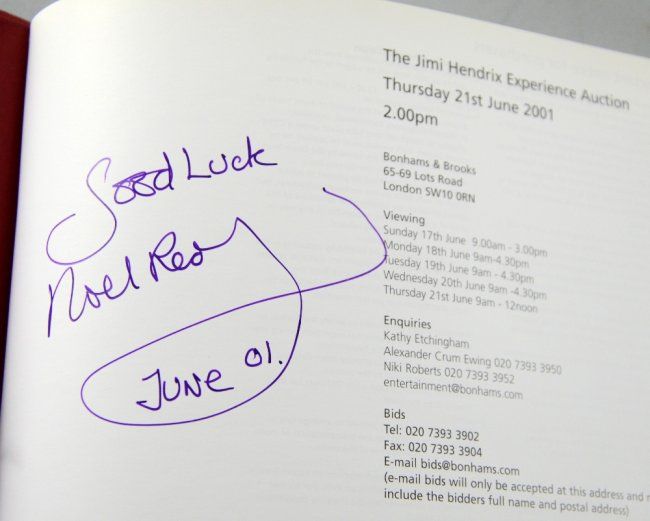 Good Luck
Noel Red
June 01.
The Jimi Hendrix Experience Auction
Thursday 21st June 2001
2.00pm
Bonhams & Brooks
65-69 Lots Road
London SW10 0RN
Viewing
Sunday 17th June 9.00am - 3.00pm
Monday 18th June 9am-4.30pm
Tuesday 19th June 9am - 4.30pm
Wednesday 20th June 9am -4.30pm
Thursday 21st June 9am - 12noon
Enquiries
Kathy Etchingham
Alexander Crum Ewing 020 7393 3950
Niki Roberts 020 7393 3952
entertainment@bonhams.com
Bids
Tel: 020 7393 3902
Fax: 020 7393 3904
E-mail bids@bonhams.com
(e-mail bids will only be accepted at this address and
include the bidders full name and postal address)